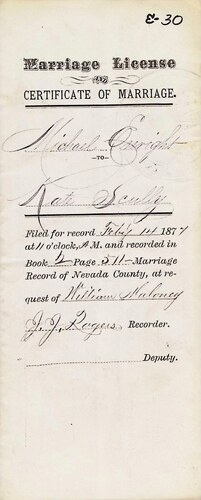 E-30
Marriage License
AND
CERTIFICATE OF MARRIAGE.
Michael Enright
—TO—
Kate Scully
Filed for record Feb'y 14 1877
at 11 o'clock, A M. and recorded in
Book 4 Page 511 Marriage
Record of Nevada County, at re-
quest of William Maloney
J. J. Rogers Recorder.
Deputy.